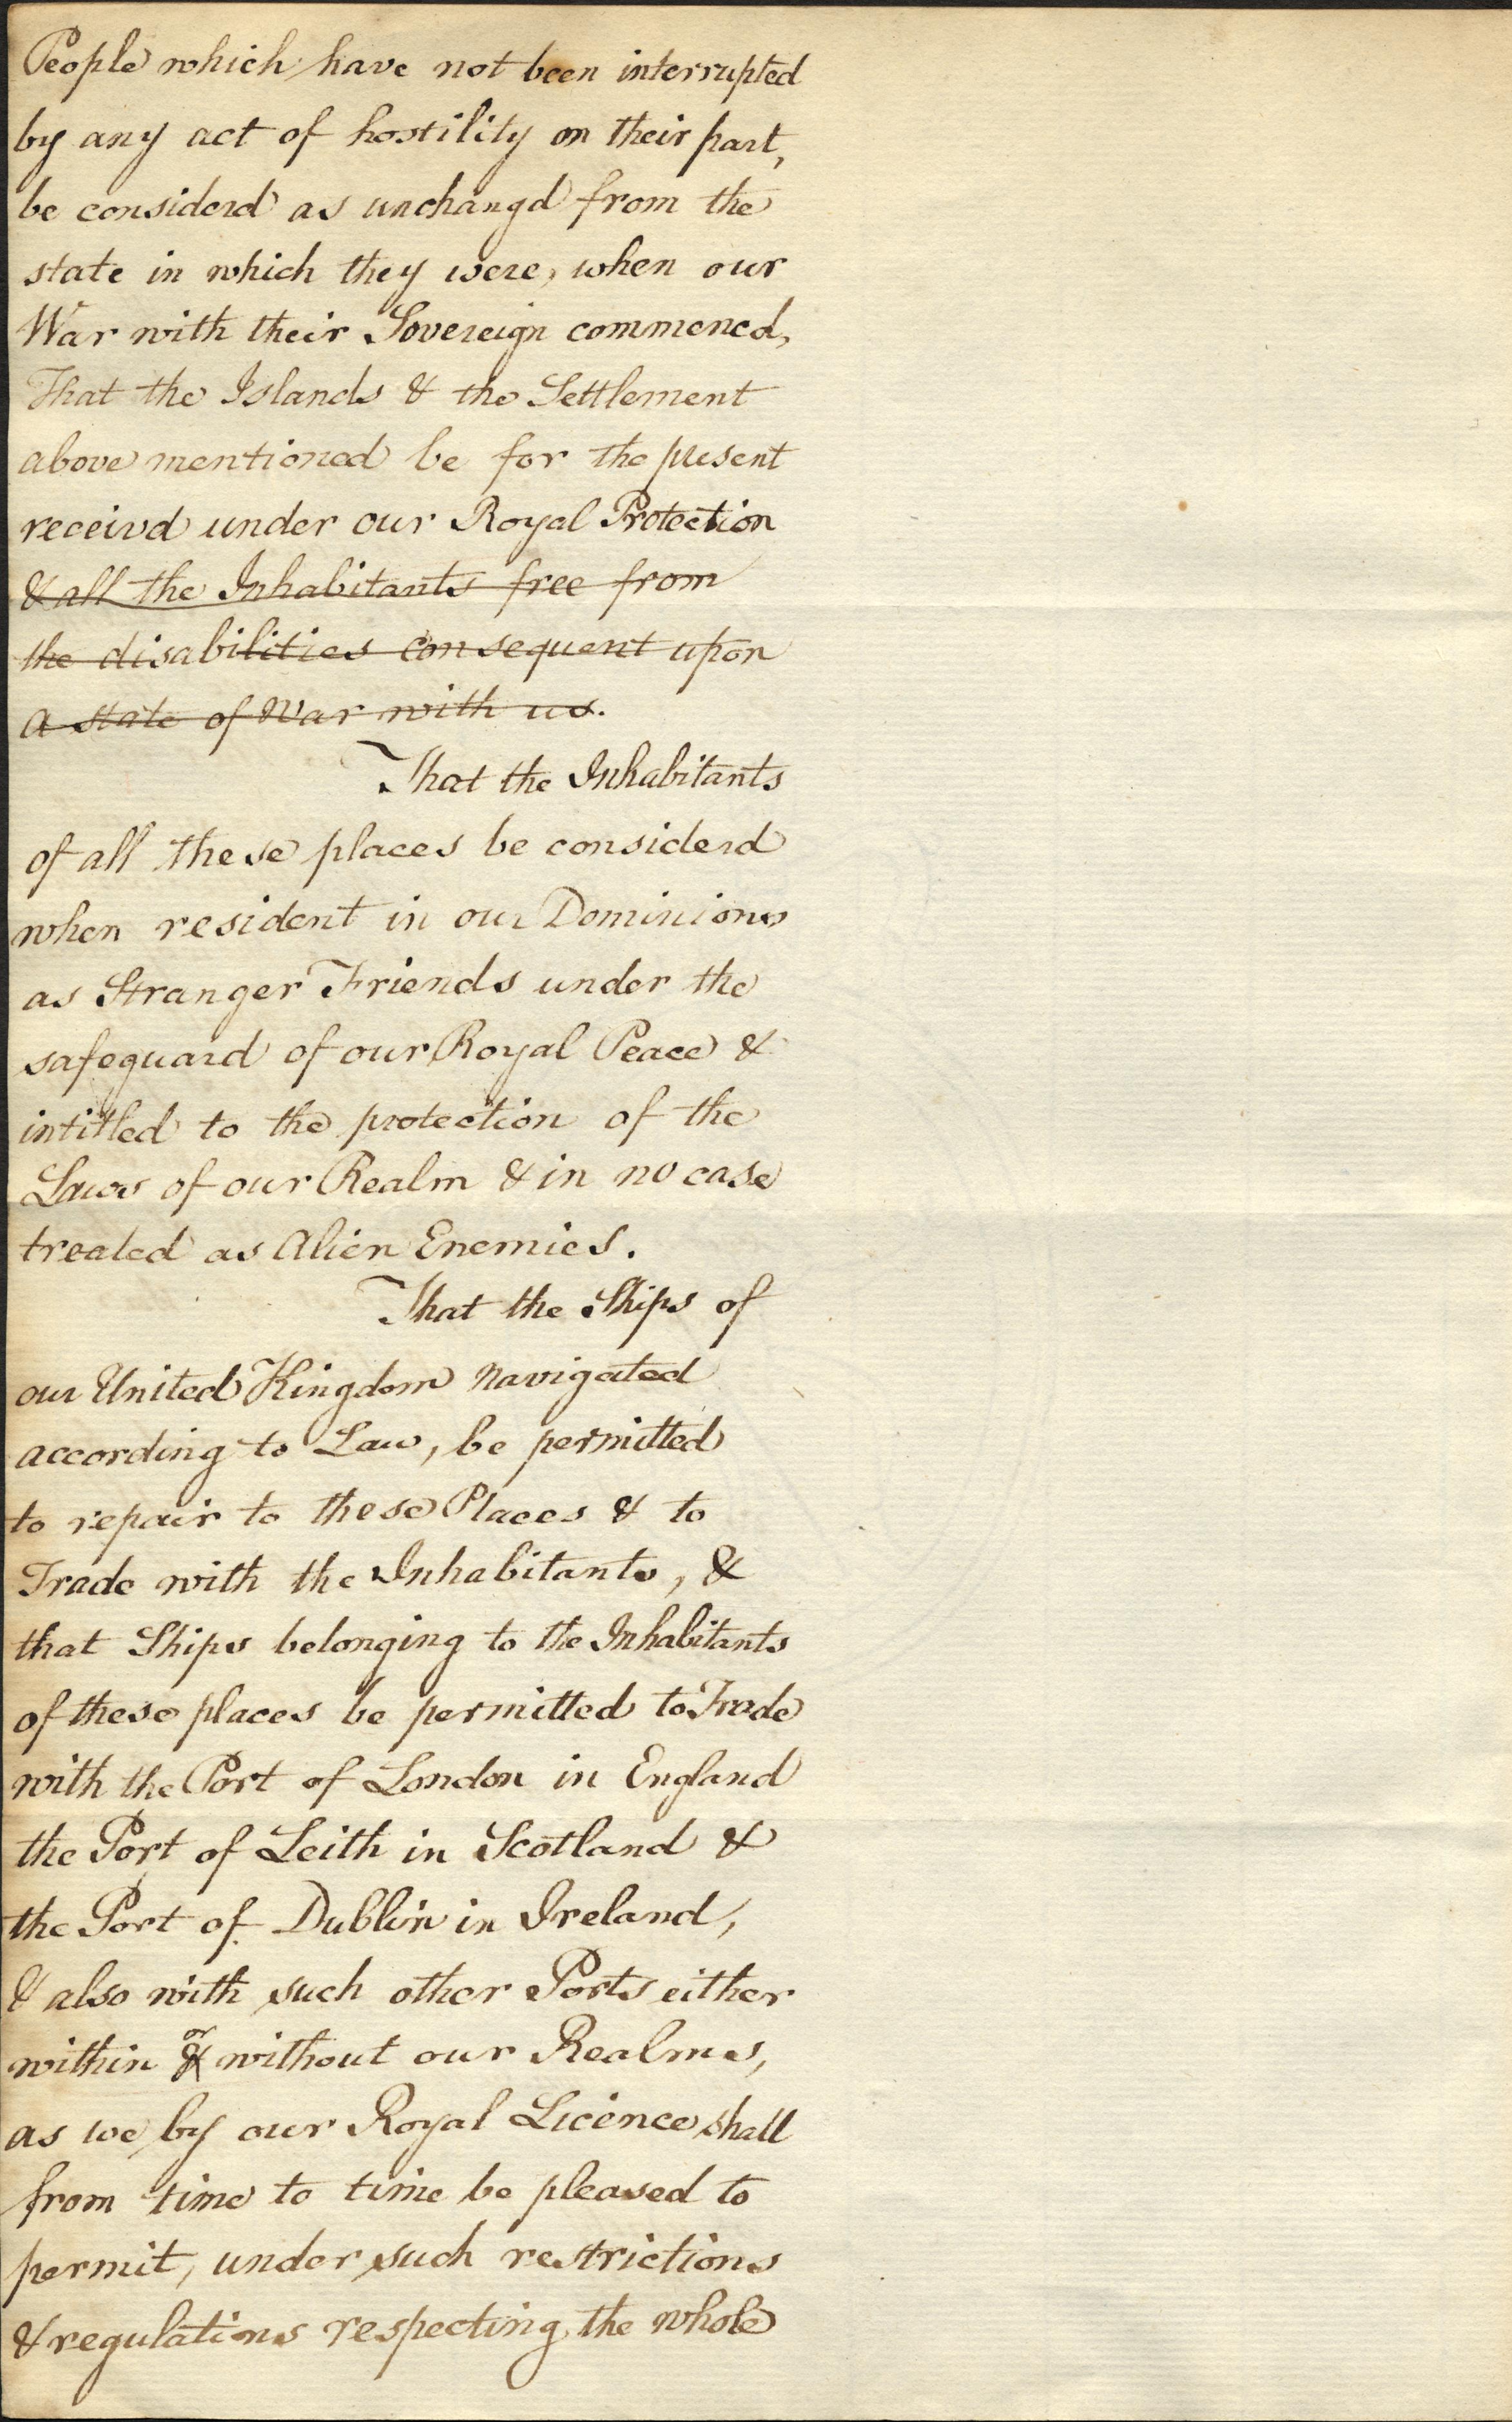 People which have not been interrupted
by any act of hostility on their part,
be considerd as unchangd from the
state in which they were, when our
War with their Sovereign commencd,
That the Islands & the Settlement
above mentioned be for the present
receivd under our Royal Protection
& all the Inhabitants free from
the disabilities consequent upon
a state of War with us.
That the Inhabitants
of all these places be considerd
when resident in our Dominions
as Stranger Friends under the
safeguard of our Royal Peace &
intitled to the protection of the
Laws of our Realm & in no case
treated as Alien Enemies.
That the Ships of
our United Kingdom Navigated
according to Law, be permitted
to repair to these Places & to
Trade with the Inhabitants, &
that Ships belonging to the Inhabitants
of these places be permitted to Trade
with the Port of London in England
the Port of Leith in Scotland &
the Port of Dublin in Ireland,
& also with such other Ports either
within & or without our Realms,
as we by our Royal Licence shall
from time to time be pleased to
permit, under such restrictions
& regulations respecting the whole